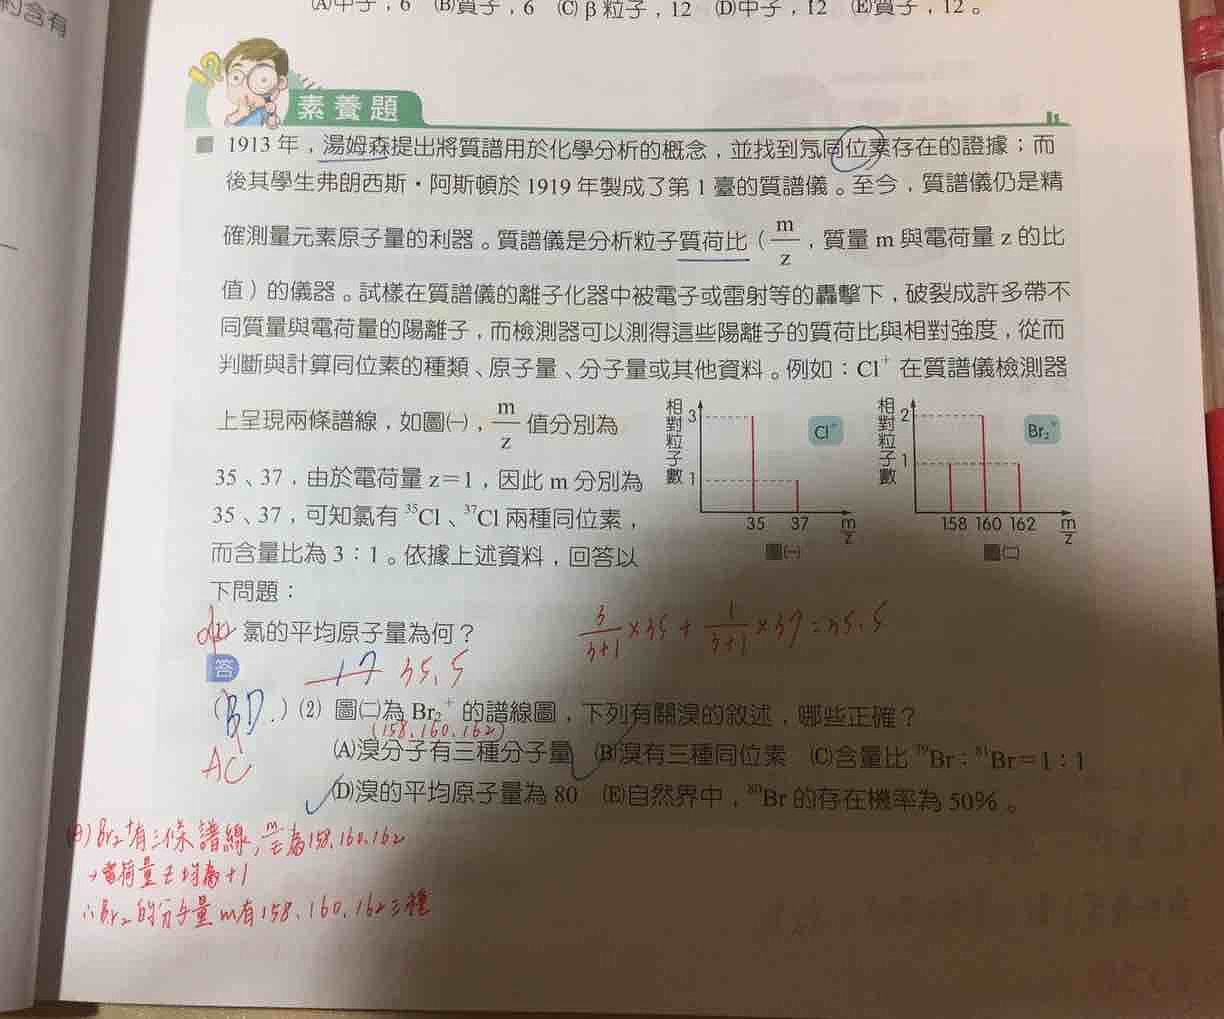 約含有
(A)中子，6 (B)質子，6 (C)β粒子，12 (D)中子，12 (E)質子，12。
素養題
1913 年，湯姆森提出將質譜用於化學分析的概念，並找到氖同位素存在的證據；而
後其學生弗朗西斯・阿斯頓於 1919 年製成了第 1 臺的質譜儀。至今，質譜儀仍是精
確測量元素原子量的利器。質譜儀是分析粒子質荷比（m/z，質量 m 與電荷量 z 的比
值）的儀器。試樣在質譜儀的離子化器中被電子或雷射等的轟擊下，破裂成許多帶不
同質量與電荷量的陽離子，而檢測器可以測得這些陽離子的質荷比與相對強度，從而
判斷與計算同位素的種類、原子量、分子量或其他資料。例如：Cl⁺ 在質譜儀檢測器
上呈現兩條譜線，如圖㈠，m/z 值分別為
35、37，由於電荷量 z＝1，因此 m 分別為
35、37，可知氯有 ³⁵Cl、³⁷Cl 兩種同位素，
而含量比為 3：1。依據上述資料，回答以
下問題：
相對粒子數
3
1
Cl⁺
35 37 m/z
圖㈠
相對粒子數
2
1
Br₂⁺
158 160 162 m/z
圖㈡
氯的平均原子量為何？
3/3+1 ×35 + 1/3+1 ×37 = 35.5
答
17 35.5
(BD.) (2) 圖㈡為 Br₂⁺ 的譜線圖，下列有關溴的敘述，哪些正確？
AC
(158.160.162)
(A)溴分子有三種分子量 (B)溴有三種同位素 (C)含量比 ⁷⁹Br：⁸¹Br＝1：1
(D)溴的平均原子量為 80 (E)自然界中，⁸⁰Br 的存在機率為 50%。
(A) Br₂⁺有三條譜線, m/z為158.160.162
→電荷量z均為+1
∴Br₂的分子量m有158、160、162三種